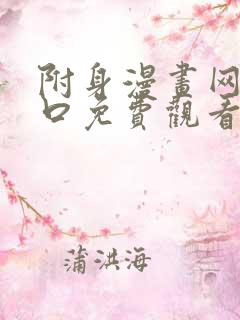 附身漫畫网
口免費觀看
蒲洪海